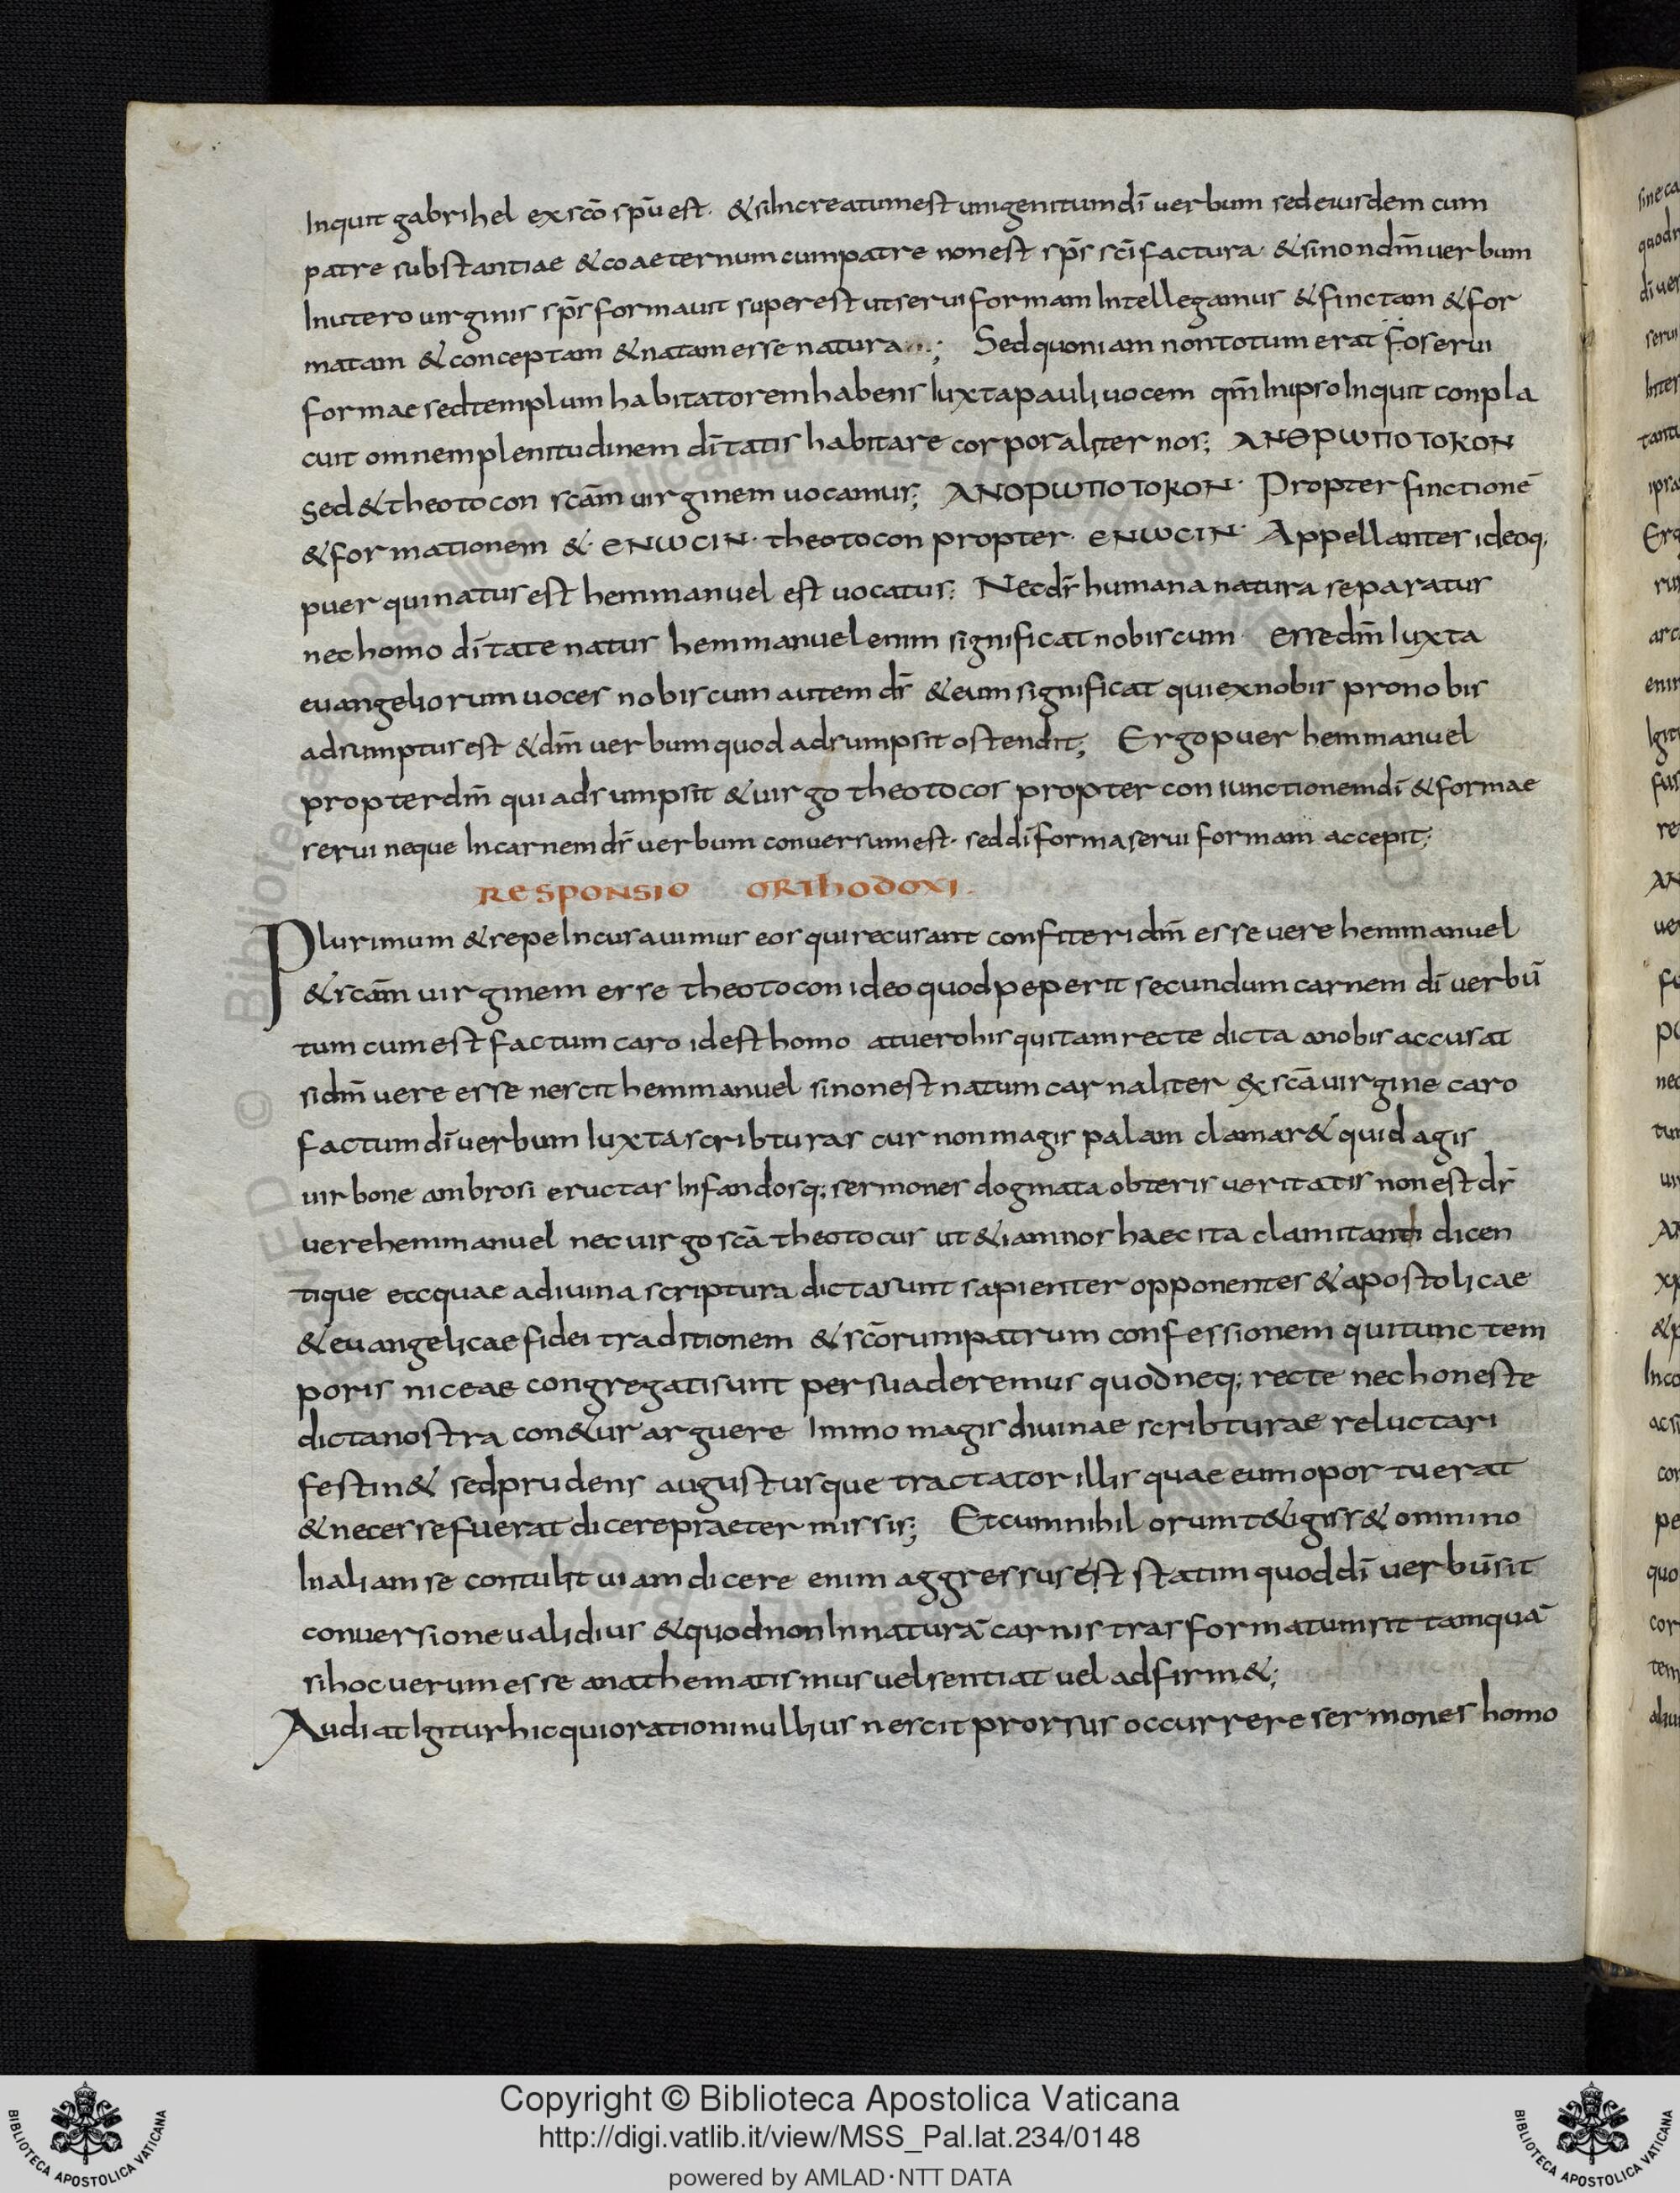 Inquit gabrihel ex scō spū est · & si Increatum est unigenitum dī uerbum sed eiusdem cum
patre substantiae & coaeternum cum patre non est sp̄s sc̄i factura · & si non dm̄ uerbum
In utero uirginis sp̄s formauit superest ut serui formam Intellegamus & finctam & for
matam & conceptam & natam esse natura...; Sed quoniam non totum erat fos erui
formae sed templum habitatorem habens Iuxta pauli uocem qm̄ In ipso Inquit conpla
cuit omnem plenitudinem dītatis habitare corporaliter nos; ΑΝΘΡωΠΟΤΟΚΟΝ
Sed & theotocon scām uirginem uocamus; ΑΝΟΡωΠΟΤΟΚΟΝ · Propter finctionē
& formationem & · ΕΝωCΙΝ · theotocon propter · ΕΝωCΙΝ · Appellanter ideoq;
puer qui natus est hemmanuel est uocatus; Nec ds̄ humana natura separatur
nec homo dītate natus hemmanuel enim significat nobiscum · esse dm̄ Iuxta
euangeliorum uoces nobiscum autem ds̄ & eum significat qui ex nobis pro nobis
adsumptus est & dm̄ uerbum quod adsumpsit ostendit; Ergo puer hemmanuel
propter dm̄ qui adsumpsit & uirgo theotocos propter coniunctionem dī & formae
serui neque In carnem ds̄ uerbum conuersum est · sed dī forma serui formam accepit;
RESPONSIO ORThODOXI.
Plurimum & sepe Incusauimus eos qui recusant confiteri dm̄ esse uere hemmanuel
& scām uirginem esse theotocon ideo quod peperit secundum carnem dī uerbū
tum cum est factum caro id est homo at uero his qui tam recte dicta a nobis accusat
si dm̄ uere esse nescit hemmanuel si non est natum carnaliter ex scā uirgine caro
factum dī uerbum Iuxta scribturas cur non magis palam clamar& quid agis
uir bone ambrosi eructas Infandosq; sermones dogmata obteris ueritatis non est ds̄
uere hemmanuel nec uirgo scā theotocus ut & iam nos haec ita clamitanti dicen
tique etcquae a diuina scriptura dicta sunt sapienter opponentes & apostolicae
& euangelicae fidei traditionem & scōrum patrum confessionem qui tunc tem
poris niceae congregati sunt persuaderemus quod neq; recte nec honeste
dicta nostra con&ur arguere Immo magis diuinae scribturae reluctari
festin& sed prudens augustusque tractator illis quae eum oportuerat
& necesse fuerat dicere praetermissis; Et cum nihil orum t&igiss& omnino
In aliam se contulit uiam dicere enim aggressus est statim quod dī uerbū sit
conuersione ualidius & quod non In naturā carnis trasformatum sit tamquā
si hoc uerum esse anathematismus uel sentiat uel adfirm&;
Audiat Igitur hic qui orationi nullius nescit prorsus occurrere sermones homo
Copyright © Biblioteca Apostolica Vaticana
http://digi.vatlib.it/view/MSS_Pal.lat.234/0148
powered by AMLAD·NTT DATA
BIBLIOTECA APOSTOLICA VATICANA
BIBLIOTECA APOSTOLICA VATICANA